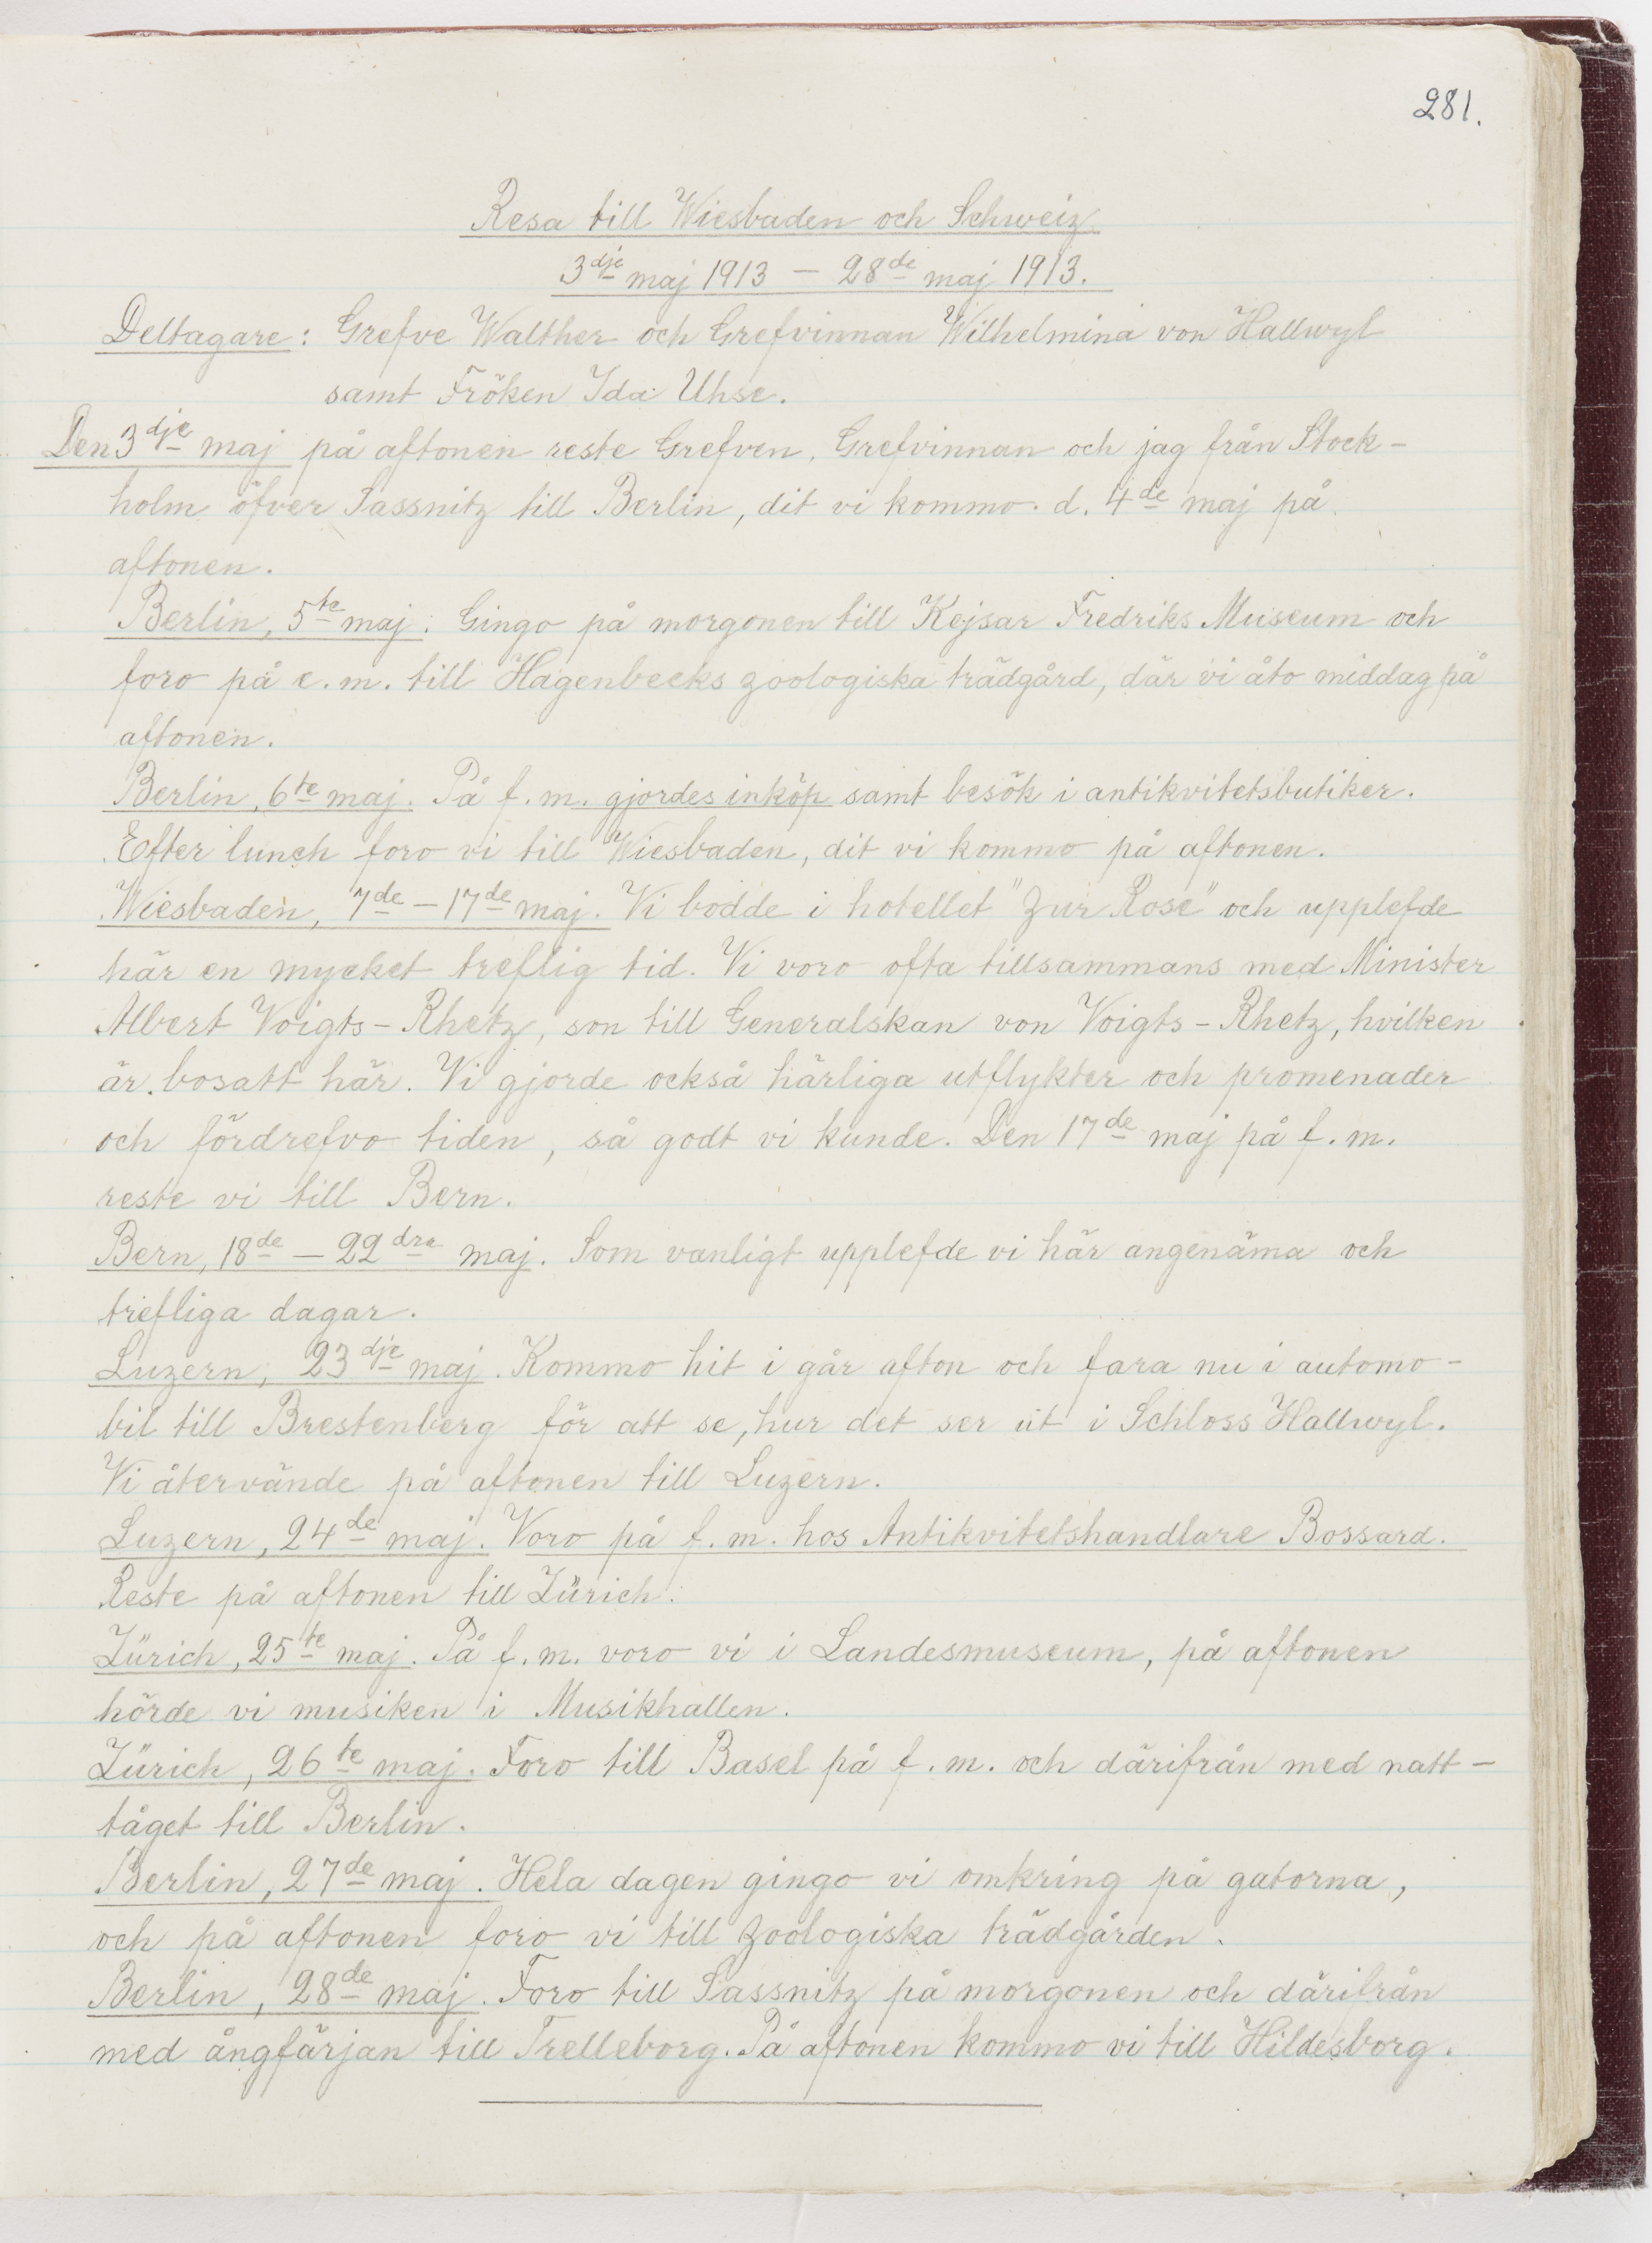 281.
Resa till Wiesbaden och Schweiz
3dje maj 1913 – 28de maj 1913.
Deltagare: Grefve Walther och Grefvinnan Wilhelmina von Hallwyl
samt Fröken Ida Uhse.
Den 3dje maj på aftonen reste Grefven, Grefvinnan och jag från Stock-
holm öfver Sassnitz till Berlin, dit vi kommo d. 4de maj på
aftonen.
Berlin, 5te maj. Gingo på morgonen till Kejsar Fredriks Museum och
foro på e.m. till Hagenbecks zoologiska trädgård, där vi åto middag på
aftonen.
Berlin, 6te maj. På f.m. gjordes inköp samt besök i antikvitetsbutiker.
Efter lunch foro vi till Wiesbaden, dit vi kommo på aftonen.
Wiesbaden, 7de – 17de maj. Vi bodde i hotellet "Zur Rose" och upplefde
här en mycket treflig tid. Vi voro ofta tillsammans med Minister
Albert Voigts-Rhetz, son till Generalskan von Voigts-Rhetz, hvilken
är bosatt här. Vi gjorde också härliga utflykter och promenader
och fördrefvo tiden, så godt vi kunde. Den 17de maj på f.m.
reste vi till Bern.
Bern, 18de – 22dra maj. Som vanligt upplefde vi här angenäma och
trefliga dagar.
Luzern, 23dje maj. Kommo hit i går afton och fara nu i automo-
bil till Brestenberg för att se, hur det ser ut i Schloss Hallwyl.
Vi återvände på aftonen till Luzern.
Luzern, 24de maj. Voro på f.m. hos Antikvitetshandlare Bossard.
Reste på aftonen till Zürich.
Zürich, 25te maj. På f.m. voro vi i Landesmuseum, på aftonen
hörde vi musiken i Musikhallen.
Zürich, 26te maj. Foro till Basel på f.m. och därifrån med natt-
tåget till Berlin.
Berlin, 27de maj. Hela dagen gingo vi omkring på gatorna,
och på aftonen foro vi till Zoologiska trädgården.
Berlin, 28de maj. Foro till Sassnitz på morgonen och därifrån
med ångfärjan till Trelleborg. På aftonen kommo vi till Hildesborg.